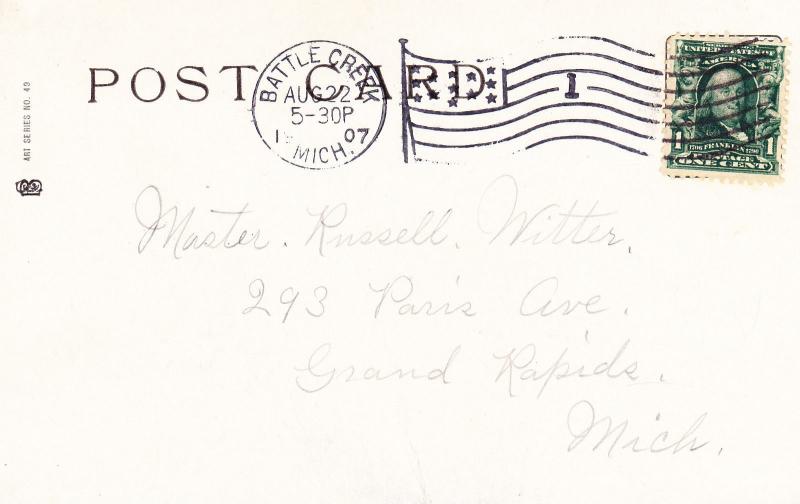 POST CARD
BATTLE CREEK
AUG 22
5-30P
1907
MICH.
1
SERIES 1902
UNITED STATES OF
AMERICA
1 1
1706 FRANKLIN 1790
POSTAGE
ONE CENT
ART SERIES NO. 49
Master. Russell. Witter.
293 Paris Ave.
Grand Rapids.
Mich.